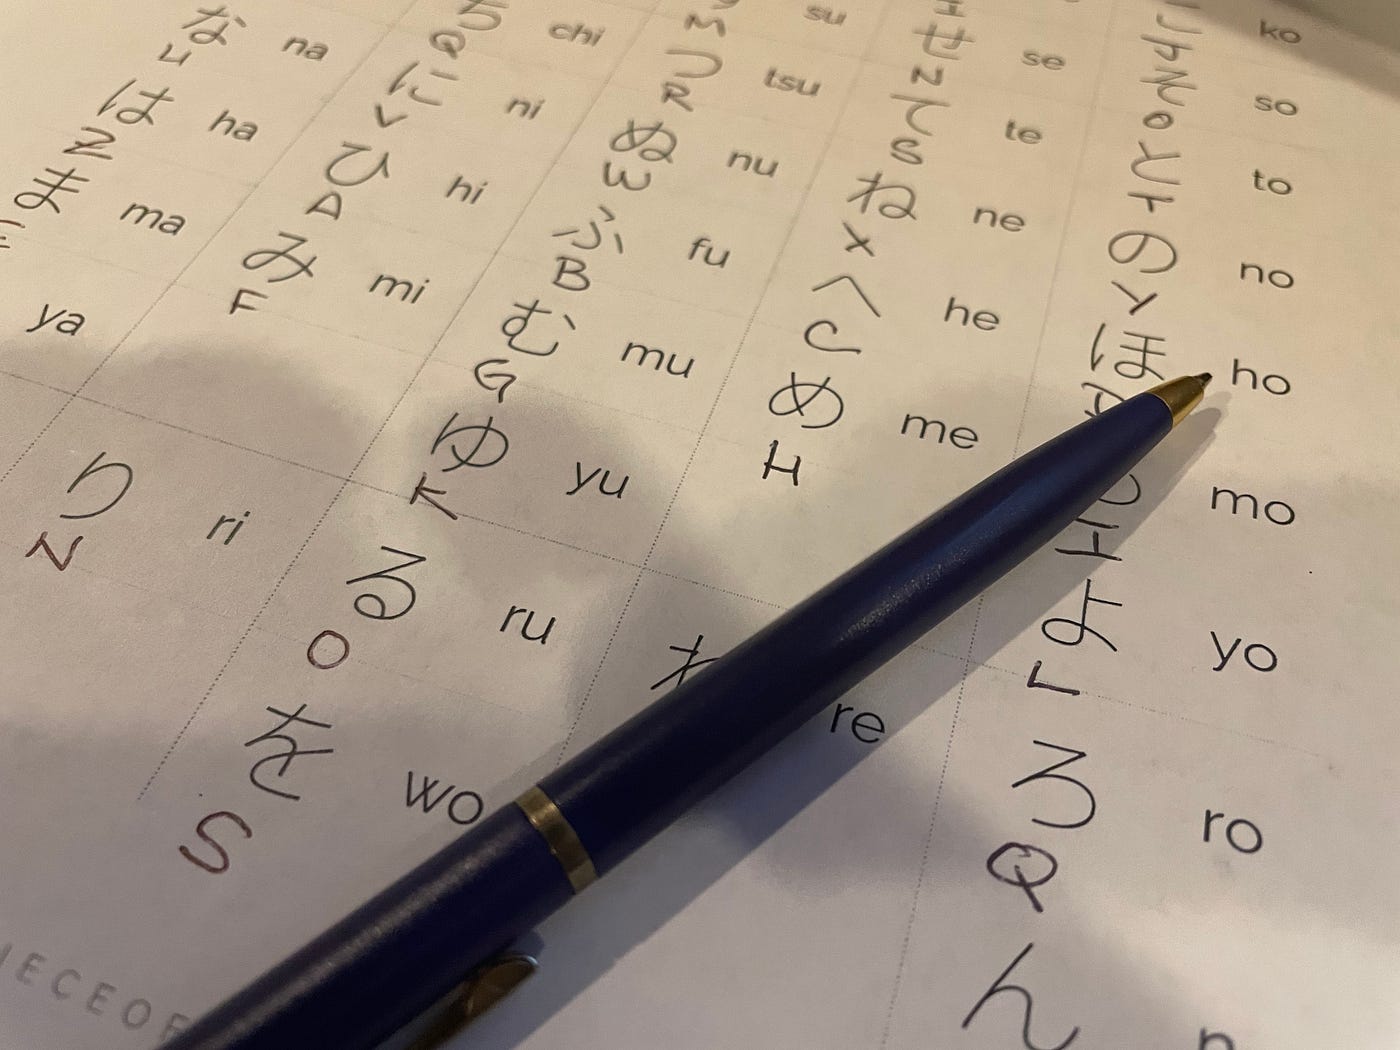 ko
su せ se そ so
M N O
ち chi つ tsu て te と to
Q R S T
な na に ni ぬ nu ね ne の no
U V W X Y
は ha ひ hi ふ fu へ he ほ ho
Z A B C
ま ma み mi む mu め me mo
F G H I
ya ゆ yu よ yo
K L
り ri る ru re ろ ro
N O Q
を wo ん
S
ECEOF